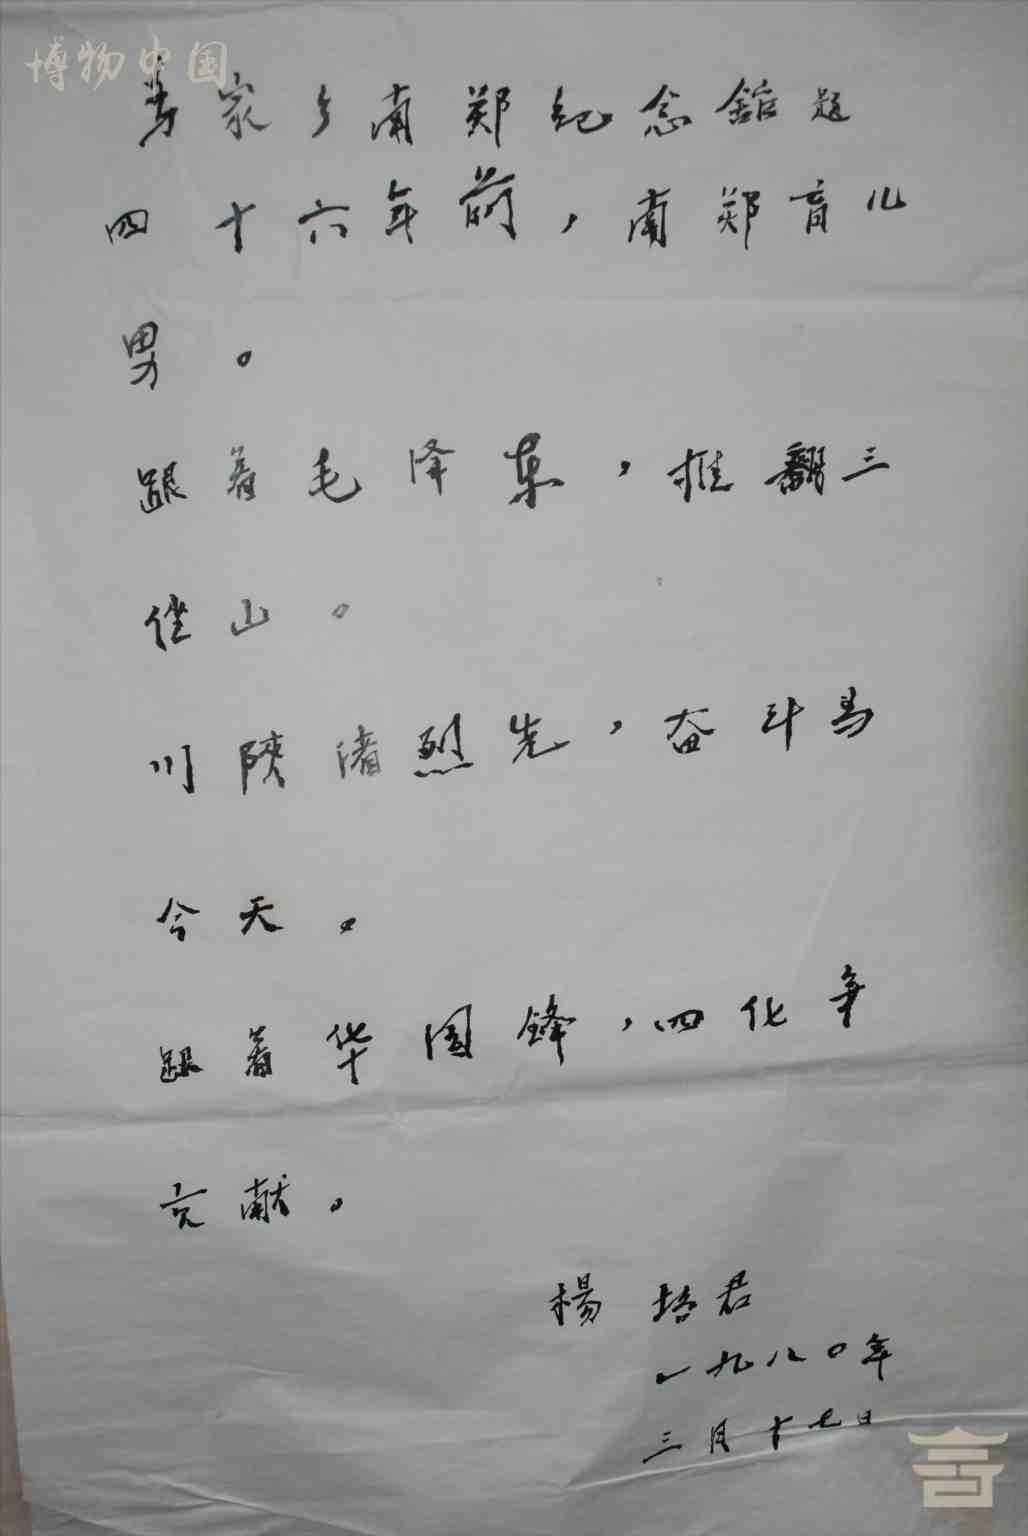 博物中国
为家乡南郑纪念馆题
四十六年前，南郑育儿
男。
跟着毛泽东，推翻三
座山。
川陕诸烈先，奋斗为
今天。
跟着华国锋，四化争
贡献。
杨培君
一九八〇年
三月十七日